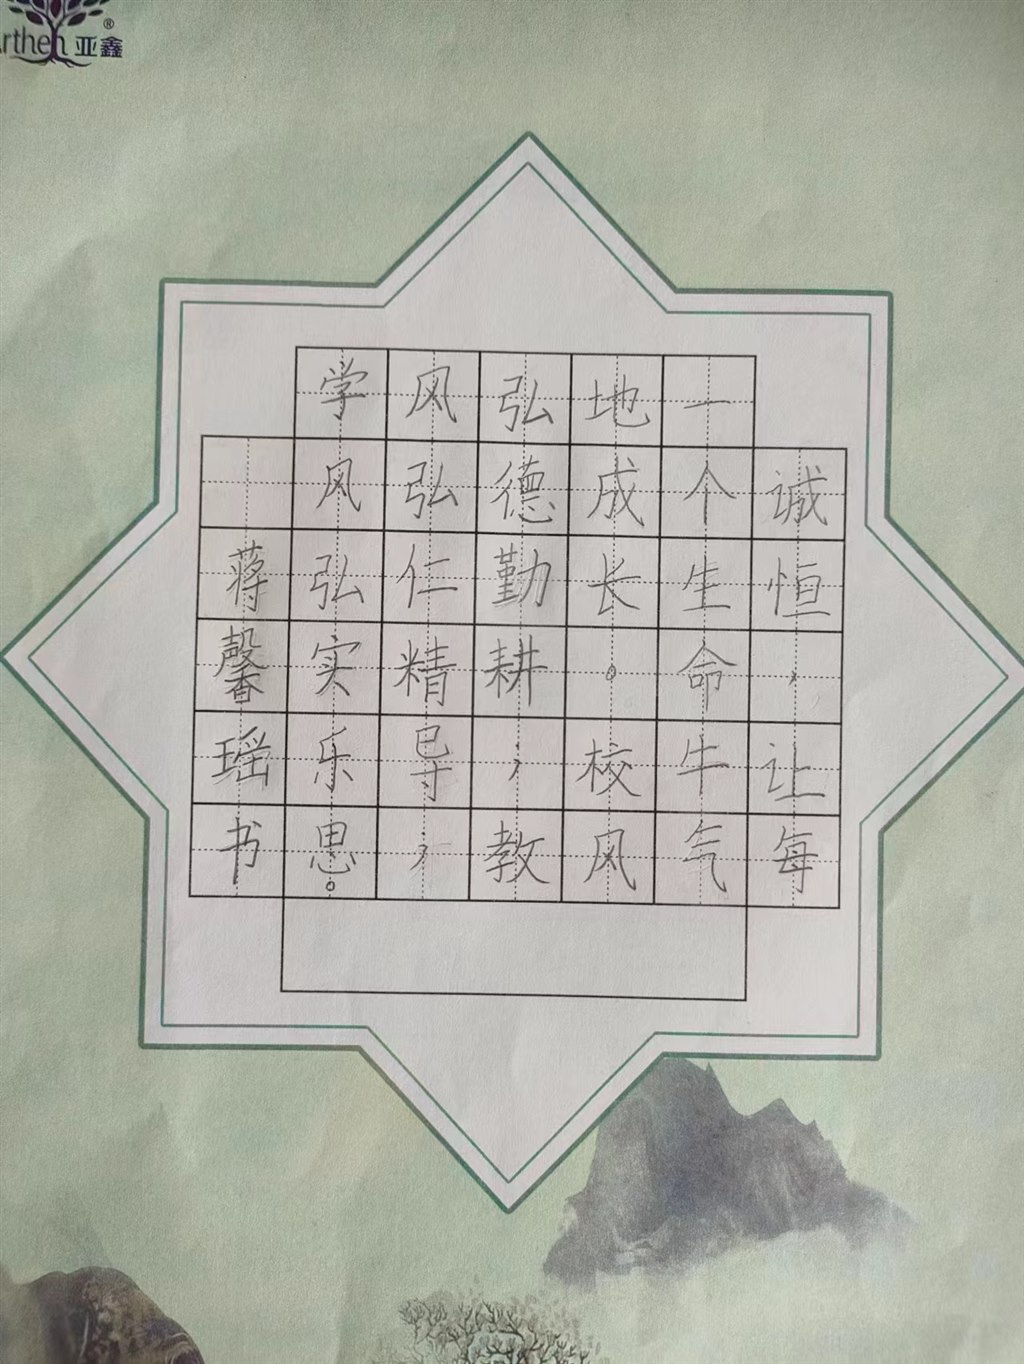 rthen亚鑫®
诚恒，让每
一个生命牛气
地成长。校风
弘德勤耕，教
风弘仁精导，
学风弘实乐思。
蒋馨瑶书